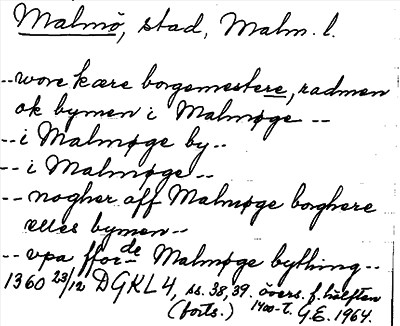 Malmö, stad, Malm. l.
-- wore kære borgemestere, radmen
ok bymen i Malmøge --
-- i Malmøge by --
-- i Malmøge --
-- nogher aff Malmøge borghere
elles bymen --
-- vpa ffor de Malmøge bything --
1360 23/12 DGKL 4, ss. 38, 39. övers. f. hälften
(forts.) 1400-t. G.E. 1964.